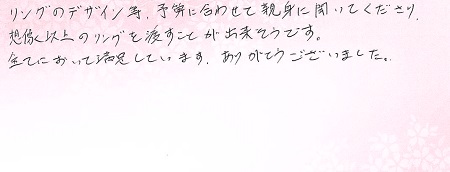 リングのデザイン等、予算に合わせて親身に聞いてくださり、
想像以上のリングを渡すことが出来そうです。
全てにおいて満足しています。ありがとうございました。